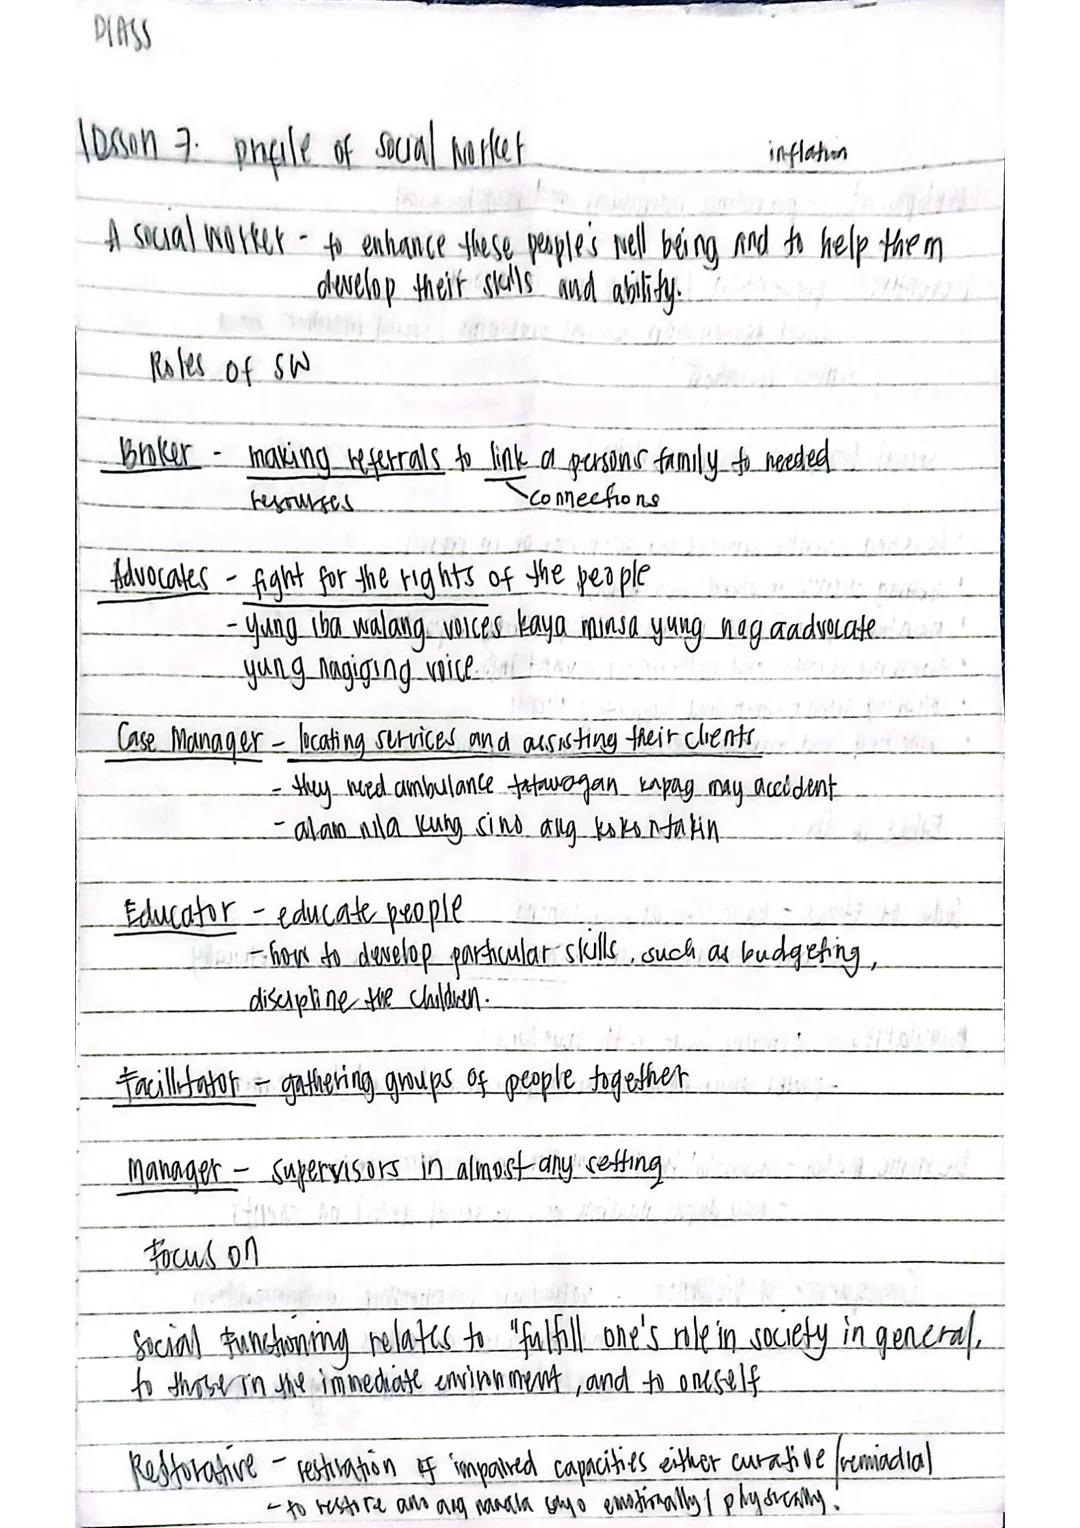 DIASS
lesson 7. profile of social worker
inflation
A social worker - to enhance these people's well being and to help them
develop their skills and ability.
Roles of SW
Broker - making referrals to link a persons family to needed
resourses
connections
Advocates - fight for the rights of the people
- yung iba walang voices kaya minsa yung nag aadvocate
yung nagiging voice.
Case Manager - locating services and assisting their clients
- they need ambulance tatawagan kapag may accident
- alam nila kung sino ang kokontakin
Educator - educate people
- how to develop particular skills, such as budgeting,
discipline the children.
Facilitator - gathering groups of people together
Manager - supervisors in almost any setting
Focus on
Social Functioning relates to "fulfill one's role in society in general,
to those in the immediate environment, and to oneself
Restorative - restoration of impaired capacities either curative / remiadial
- to restore ano ang nawala sayo emotionally / physically.